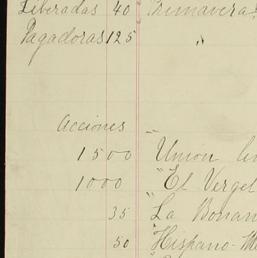 Liberadas 40 Primavera
Pagadoras 125 "
Acciones
1500 "Union
1000 "El Vergel
35 "La Bonan
50 "Hispano-M